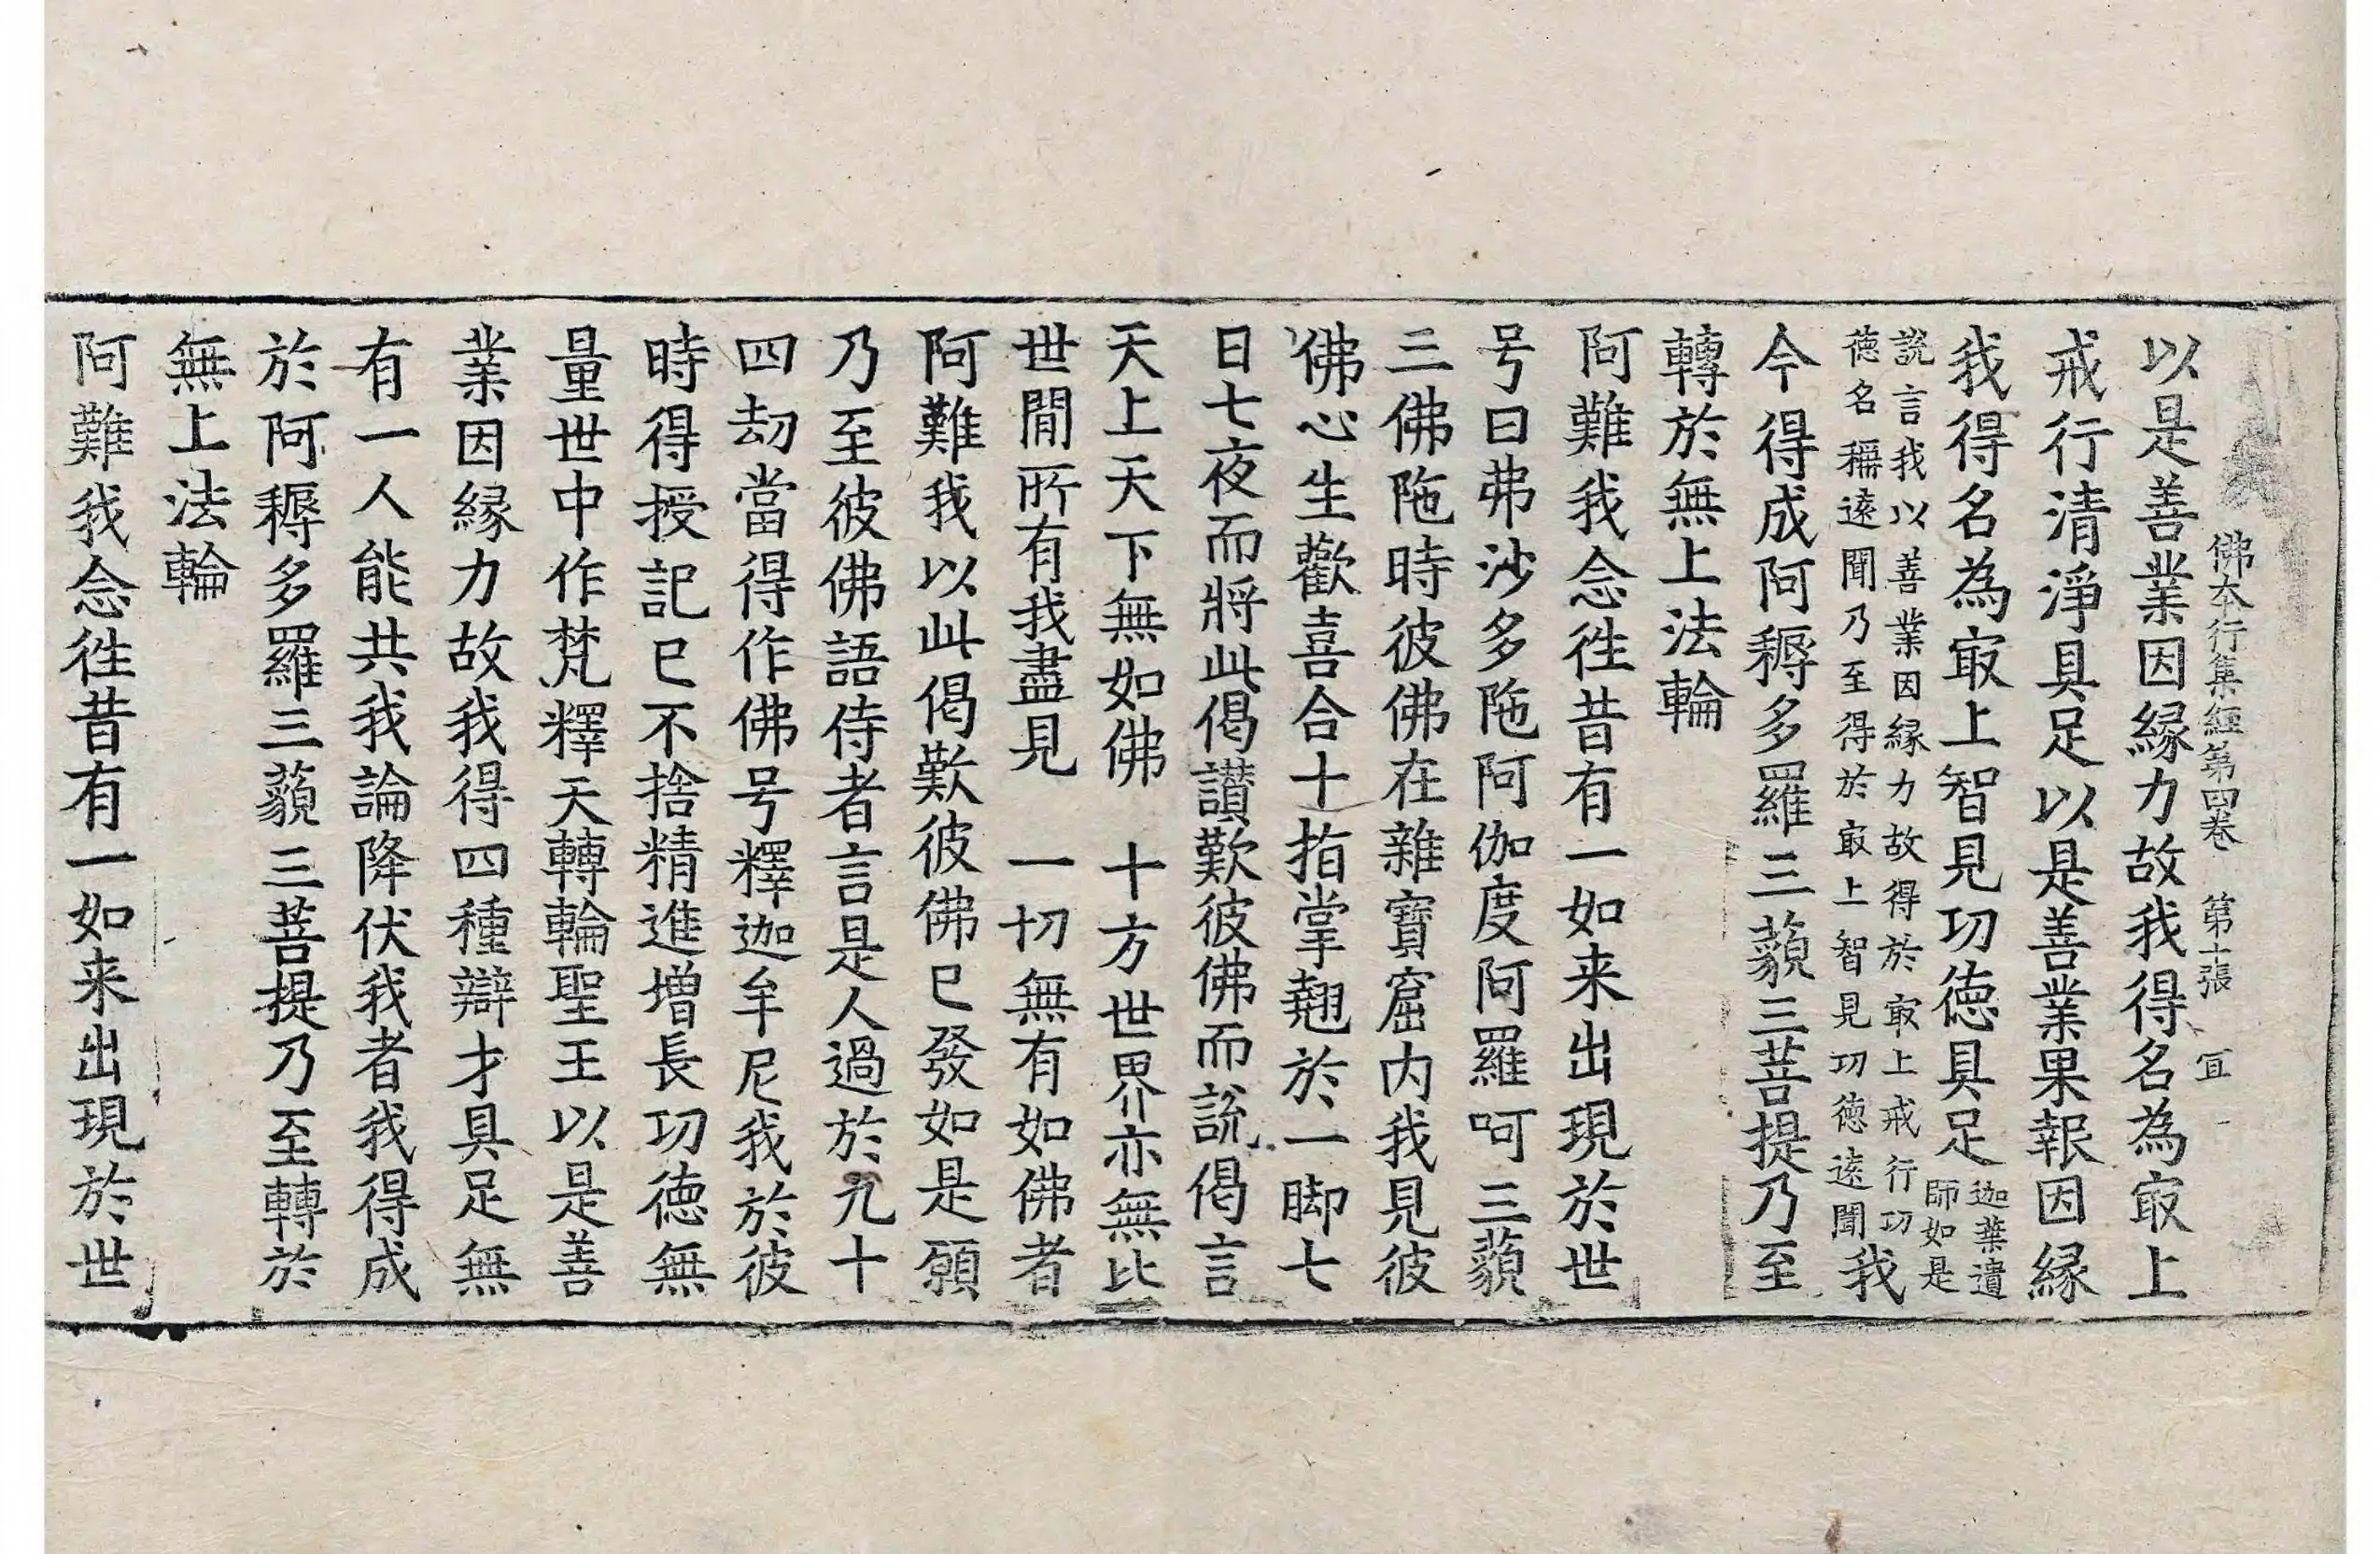 佛本行集經第四卷　第十張　宜
以是善業因緣力故我得名為㝡上
戒行清淨具足以是善業果報因緣
我得名為㝡上智見功德具足迦葉遺師如是
說言我以善業因緣力故得於㝡上戒行功德名稱遠聞乃至得於㝡上智見功德遠聞我
今得成阿耨多羅三藐三菩提乃至
轉於無上法輪
阿難我念徃昔有一如来出現於世
号曰弗沙多陁阿伽度阿羅呵三藐
三佛陁時彼佛在雜寶窟内我見彼
佛心生歡喜合十指掌翹於一脚七
日七夜而將此偈讃歎彼佛而說偈言
天上天下無如佛　十方世界亦無比
世間所有我盡見　一切無有如佛者
阿難我以此偈歎彼佛已發如是願
乃至彼佛語侍者言是人過於九十
四劫當得作佛号釋迦牟尼我於彼
時得授記已不捨精進增長功德無
量世中作梵釋天轉輪聖王以是善
業因緣力故我得四種辯才具足無
有一人能共我論降伏我者我得成
於阿耨多羅三藐三菩提乃至轉於
無上法輪
阿難我念徃昔有一如来出現於世